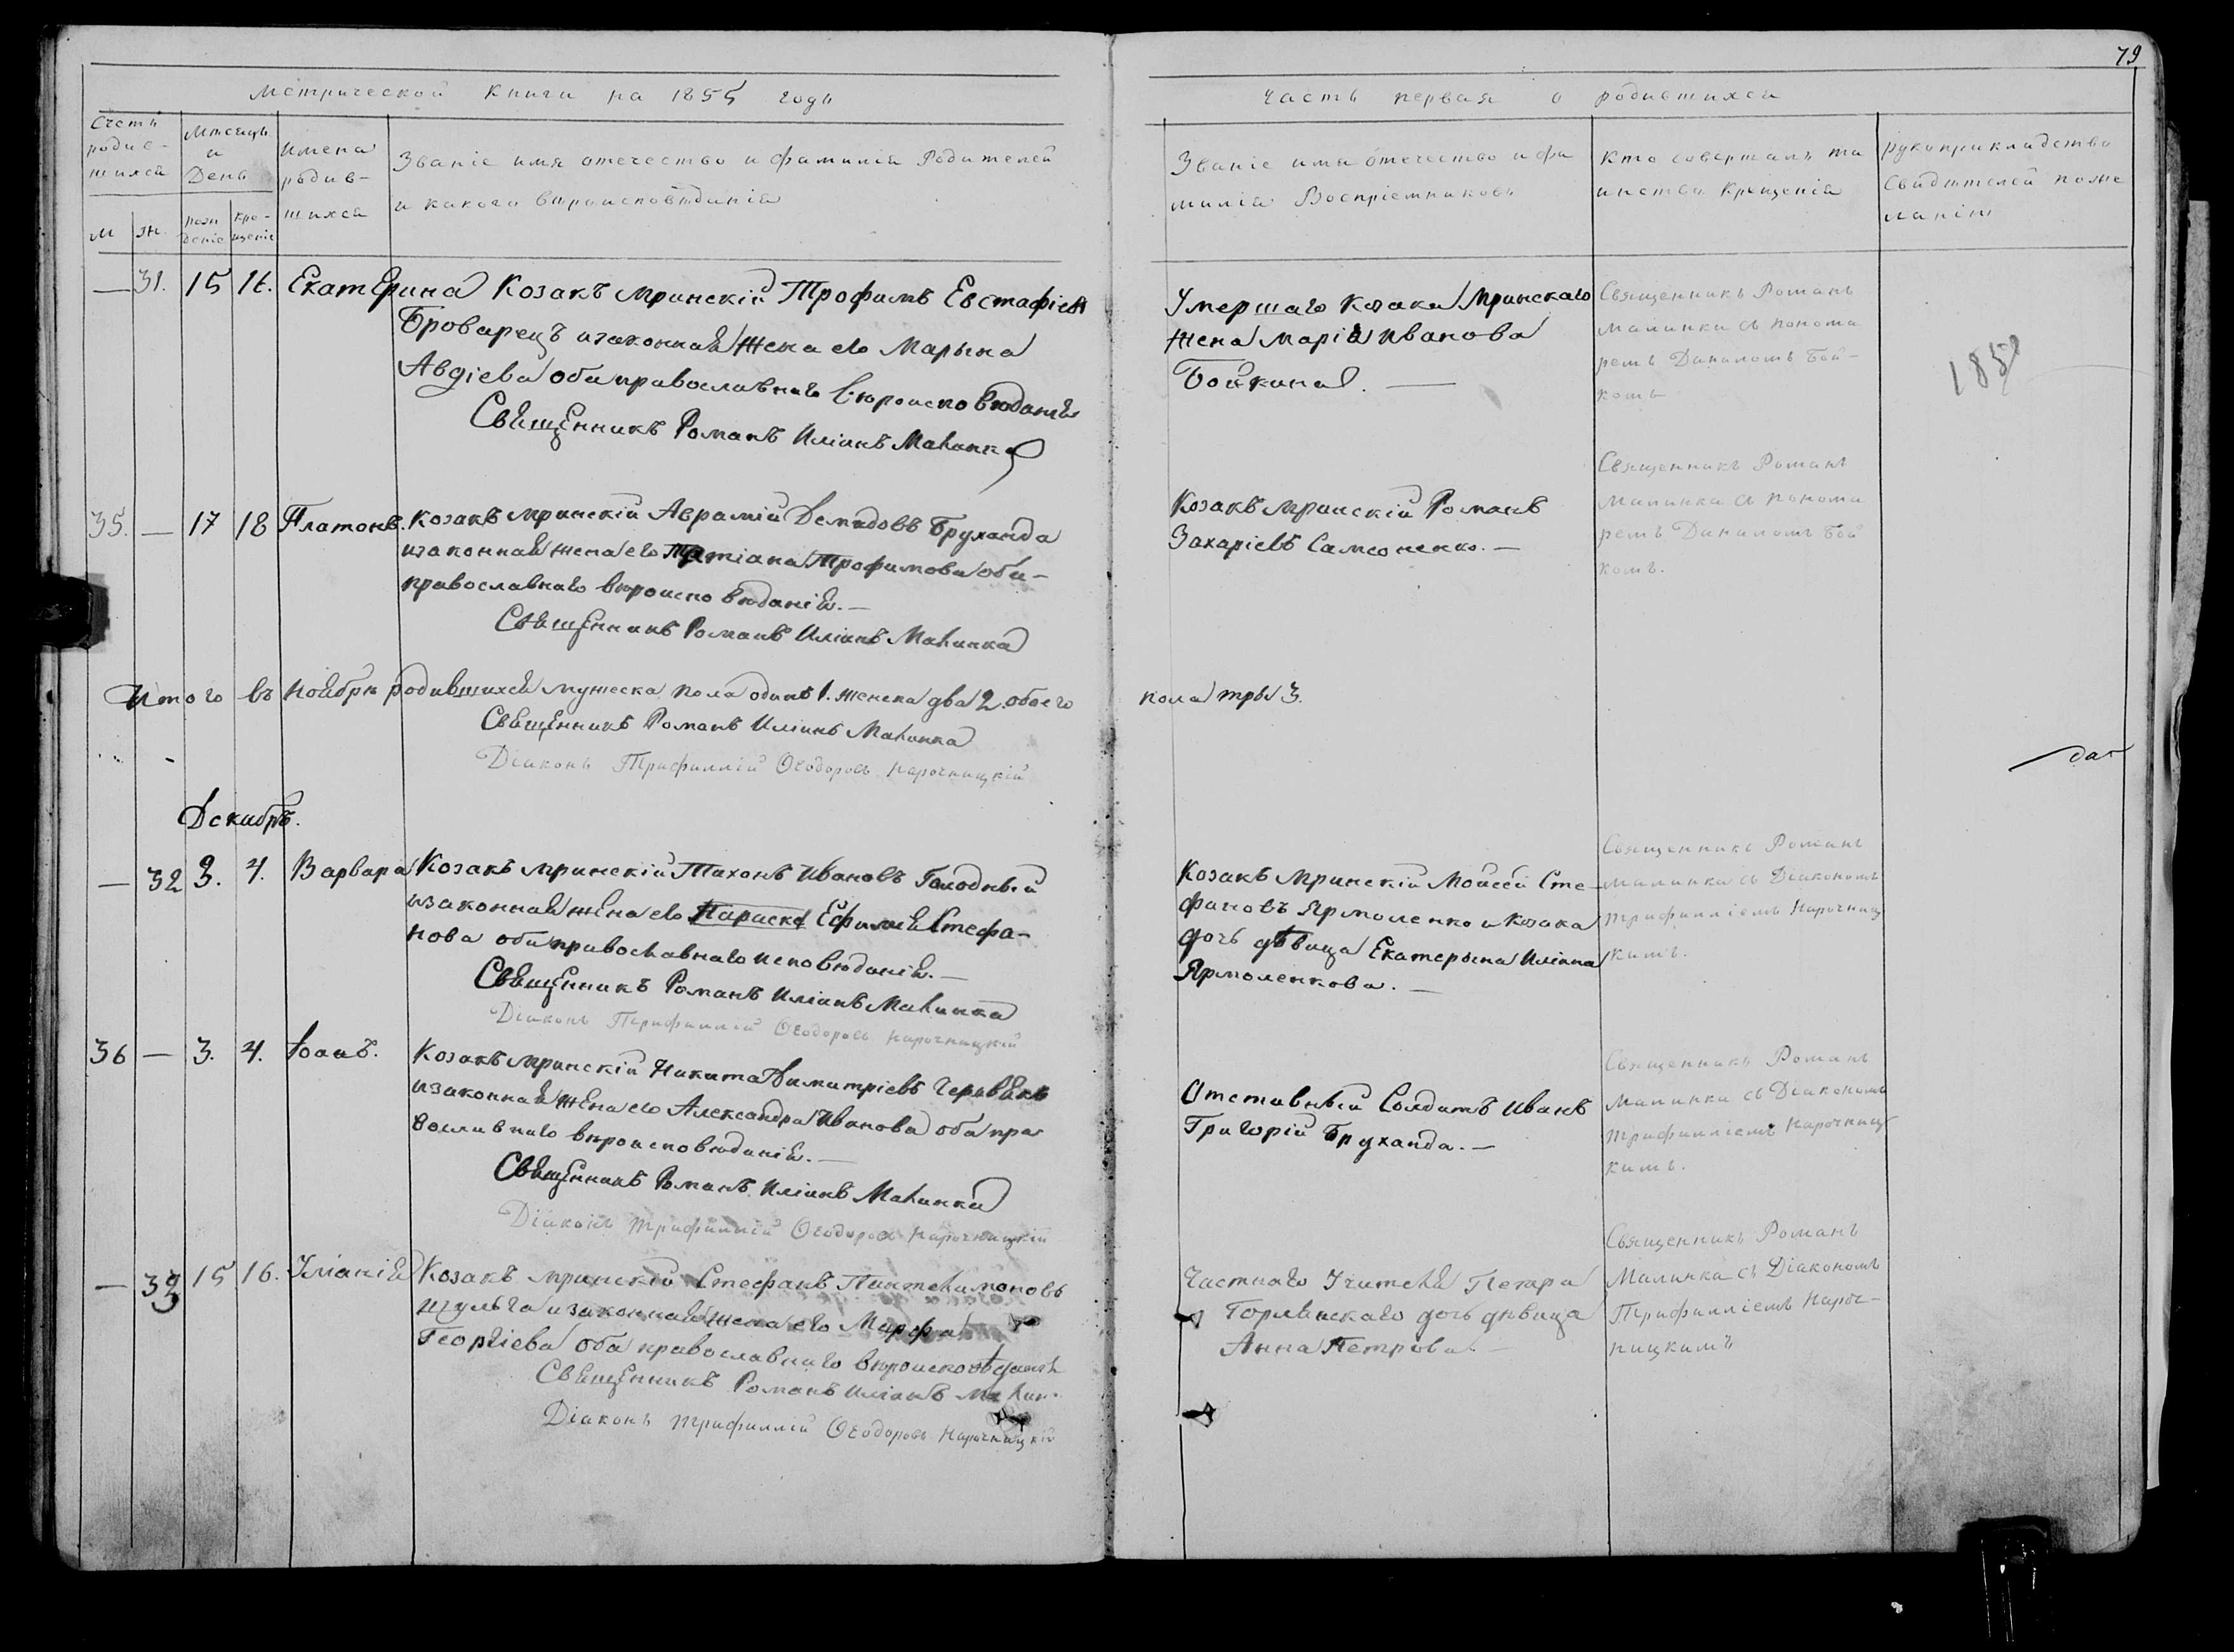 79
Метрической Книги на 1855 годъ
Часть первая о родившихся
Счетъ родив-шихся
М
ж.
Мѣсяцъ и День
рож деніе
кре-щеніе
Имена родив-шихся
Званіе имя отечество и фамилія Родителей
и какого вѣроисповѣданія
Званіе имя отечество и фа
милія Воспріемниковъ
Кто совершалъ та
инство Крещенія
рукоприкладство
свидѣтелей по же
ланію
— 31. 15 16. Екатерина Козакъ мринскій Трофимъ Евстафіевъ
Броварецъ изаконная жена его Марына
Авдіева оба православнаго вѣроисповѣданія
Священникъ Романъ Иліинъ Малинка
Умершаго козака Мринскаго
жена Марія Иванова
Бойкина. —
Священникъ Романъ
Малинка съ понома
ремъ Даниломъ Бой-
комъ
185
35. — 17 18 Платонъ. Козакъ мринскій Аврамій Демидовъ Бруханда
изаконная жена его Татіана Трофимова оба-
православнаго вѣроисповѣданія. —
Священникъ Романъ Иліинъ Малинка
Козакъ мринскій Романъ
Захаріевъ Самсоненко. —
Священникъ Романъ
Малинка съ понома
ремъ Даниломъ Бой
комъ.
Итого въ Ноябрѣ родившихся мужеска пола одинъ 1. женска два 2. обоего
пола тры 3.
Священникъ Романъ Иліинъ Малинка
Діаконъ Трифиллій Ѳеодоровъ Нарочницкій
Декабрь.
— 32 3. 4. Варвара Козакъ мринскій Тихонъ Ивановъ Голодный
изаконная жена его Параскева Ефимія Стефа-
нова оба православнаго исповѣданія. —
Священникъ Романъ Иліинъ Малинка
Діаконъ Трифиллій Ѳеодоровъ Нарочницкій
Козакъ мринскій Моисей Сте-
фановъ Ярмоленко и козака
дочь дѣвица Екатерына Иліина
Ярмоленкова. —
Священникъ Романъ
Малинка съ Діакономъ
Трифилліемъ Нарочниц
кимъ.
36 — 3. 4. Іоанъ. Козакъ мринскій Никита Димитріевъ Червякъ
изаконная жена его Александра Иванова оба пра
вославнаго вѣроисповѣданія. —
Священникъ Романъ Иліинъ Малинка
Діаконъ Трифиллій Ѳеодоровъ Нарочницкій
Отставный Солдатъ Иванъ
Григорій Бруханда. —
Священникъ Романъ
Малинка съ Діакономъ
Трифилліемъ Нарочниц
кимъ.
— 33 15 16. Уліанія Козакъ мринскій Стефанъ Пантелимоновъ
Шульга изаконная жена его Марфа
Георгіева оба православнаго вѣроисповѣданія
Священникъ Романъ Иліинъ Малин
Діаконъ Трифиллій Ѳеодоровъ Нарочницкій
Частнаго Учителя Петра
Горлинскаго дочь дѣвица
Анна Петрова. —
Священникъ Романъ
Малинка съ Діакономъ
Трифилліемъ Нароч-
ницкимъ